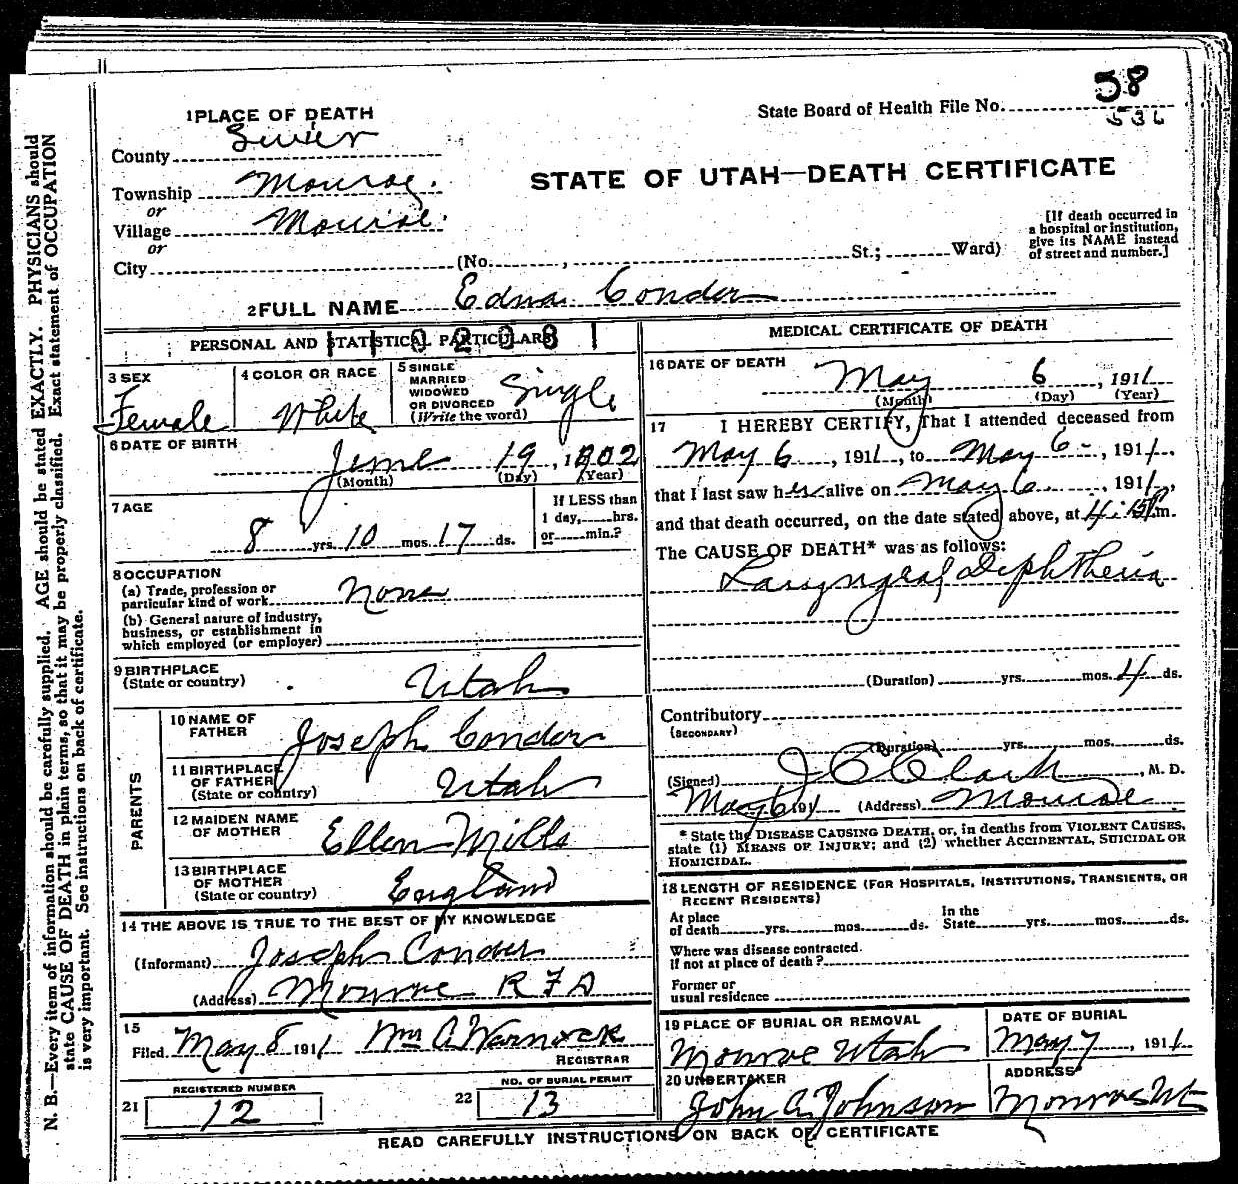 58
536
State Board of Health File No.
1 PLACE OF DEATH
County Sevier
Township Monroe.
or
Village Monroe.
or
City (No. , St.; Ward)
STATE OF UTAH—DEATH CERTIFICATE
[If death occurred in
a hospital or institution,
give its NAME instead
of street and number.]
2 FULL NAME Edna Conder
PERSONAL AND STATISTICAL PARTICULARS
3 SEX
Female
4 COLOR OR RACE
White
5 SINGLE
MARRIED
WIDOWED
OR DIVORCED
(Write the word)
Single
6 DATE OF BIRTH
June 19, 1902
(Month) (Day) (Year)
7 AGE
8 yrs. 10 mos. 17 ds.
If LESS than
1 day, hrs.
or min.?
8 OCCUPATION
(a) Trade, profession or
particular kind of work None
(b) General nature of industry,
business, or establishment in
which employed (or employer)
9 BIRTHPLACE
(State or country)
Utah
PARENTS
10 NAME OF
FATHER
Joseph Conder
11 BIRTHPLACE
OF FATHER
(State or country)
Utah
12 MAIDEN NAME
OF MOTHER
Ellen Mills
13 BIRTHPLACE
OF MOTHER
(State or country)
England
14 THE ABOVE IS TRUE TO THE BEST OF MY KNOWLEDGE
(Informant) Joseph Conder
(Address) Monroe R F D
15
Filed May 8 1911 Wm A. Warnock
REGISTRAR
REGISTERED NUMBER
21 12
NO. OF BURIAL PERMIT
22 13
MEDICAL CERTIFICATE OF DEATH
16 DATE OF DEATH
May 6, 1911
(Month) (Day) (Year)
17 I HEREBY CERTIFY, That I attended deceased from
May 6, 1911, to May 6-, 1911.
that I last saw her alive on May 6, 1911,
and that death occurred, on the date stated above, at 4:15 P.m.
The CAUSE OF DEATH* was as follows:
Laryngeal diphtheria
(Duration) yrs. mos. 4 ds.
Contributory
(SECONDARY)
(Duration) yrs. mos. ds.
(Signed) J C Clark, M. D.
May 6 191 (Address) Monroe
* State the DISEASE CAUSING DEATH, or, in deaths from VIOLENT CAUSES,
state (1) MEANS OF INJURY; and (2) whether ACCIDENTAL, SUICIDAL OR
HOMICIDAL.
18 LENGTH OF RESIDENCE (FOR HOSPITALS, INSTITUTIONS, TRANSIENTS, OR
RECENT RESIDENTS)
At place
of death yrs. mos. ds.
In the
State yrs. mos. ds.
Where was disease contracted.
If not at place of death?
Former or
usual residence
19 PLACE OF BURIAL OR REMOVAL
Monroe Utah
DATE OF BURIAL
May 7, 1911
20 UNDERTAKER
John A. Johnson
ADDRESS
Monroe Ut
READ CAREFULLY INSTRUCTIONS ON BACK OF CERTIFICATE
N. B.—Every item of information should be carefully supplied. AGE should be stated EXACTLY. PHYSICIANS should
state CAUSE OF DEATH in plain terms, so that it may be properly classified. Exact statement of OCCUPATION
is very important. See instructions on back of certificate.